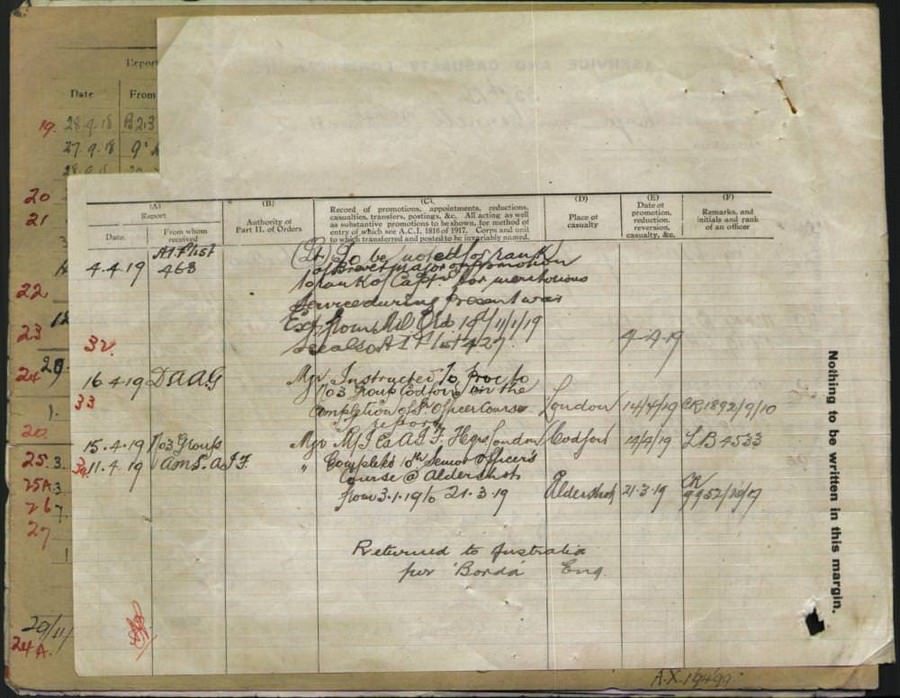 Report
Date From
19. 28.9.18 B213
27.9.18
20
21
22
23
24
20.
25. 3.
25A 3
26 7.
27
29/11/
24A.
(A)
Report
Date.
From whom
received
(B)
Authority of
Part II. of Orders
(C)
Record of promotions, appointments, reductions,
casualties, transfers, postings, &c. All acting as well
as substantive promotions to be shown, for method of
entry of which see A.C.I. 1816 of 1917. Corps and unit
to which transferred and posted to be invariably named.
(D)
Place of
casualty
(E)
Date of
promotion,
reduction,
reversion,
casualty, &c.
(F)
Remarks, and
initials and rank
of an officer
4.4.19 468 To be noted for rank
of Brevet Major on promotion
to rank of Capt. for meritorious
service during Present war
11/1/19
See also A I F list 427. 4-4-19
32.
16.4.19 DAAG Mjr. Instructed to Proc to
33 No 3 Group Codford on the
Completion of Sr Officer Course London 14/4/19 CR1892/9/10
report
15.4.19 No 3 Group Mjr M/I Ex A.I.F. Hqrs London Codford 14/4/19 LB4533
11.4.19 Completed 10th Senior Officer's
Course @ Aldershot
from 3.1.19 to 21.3.19 Aldershot 21.3.19
Returned to Australia
per 'Borda' Eng.
Nothing to be written in this margin.